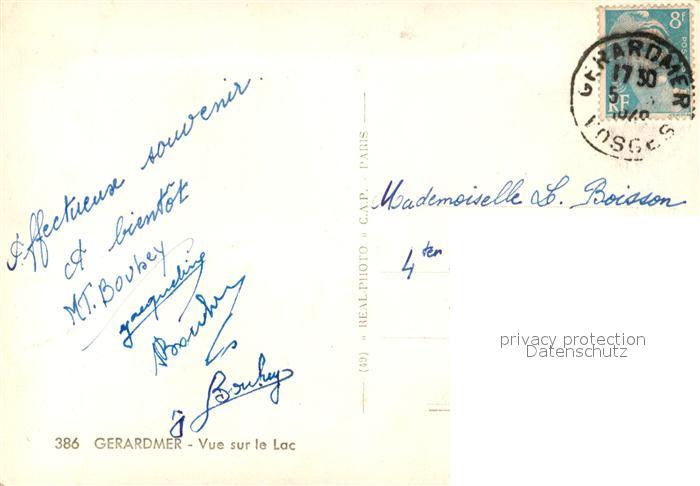 Affectueux souvenir.
A bientôt
MT. Boubey
Jacqueline
J Boubey
386 GERARDMER - Vue sur le Lac
(49) » REAL-PHOTO « C.A.P. - PARIS
8F
RF
GERARDMER
17 30
5
VOSGES
Mademoiselle L. Boisson
4 ter
privacy protection
Datenschutz